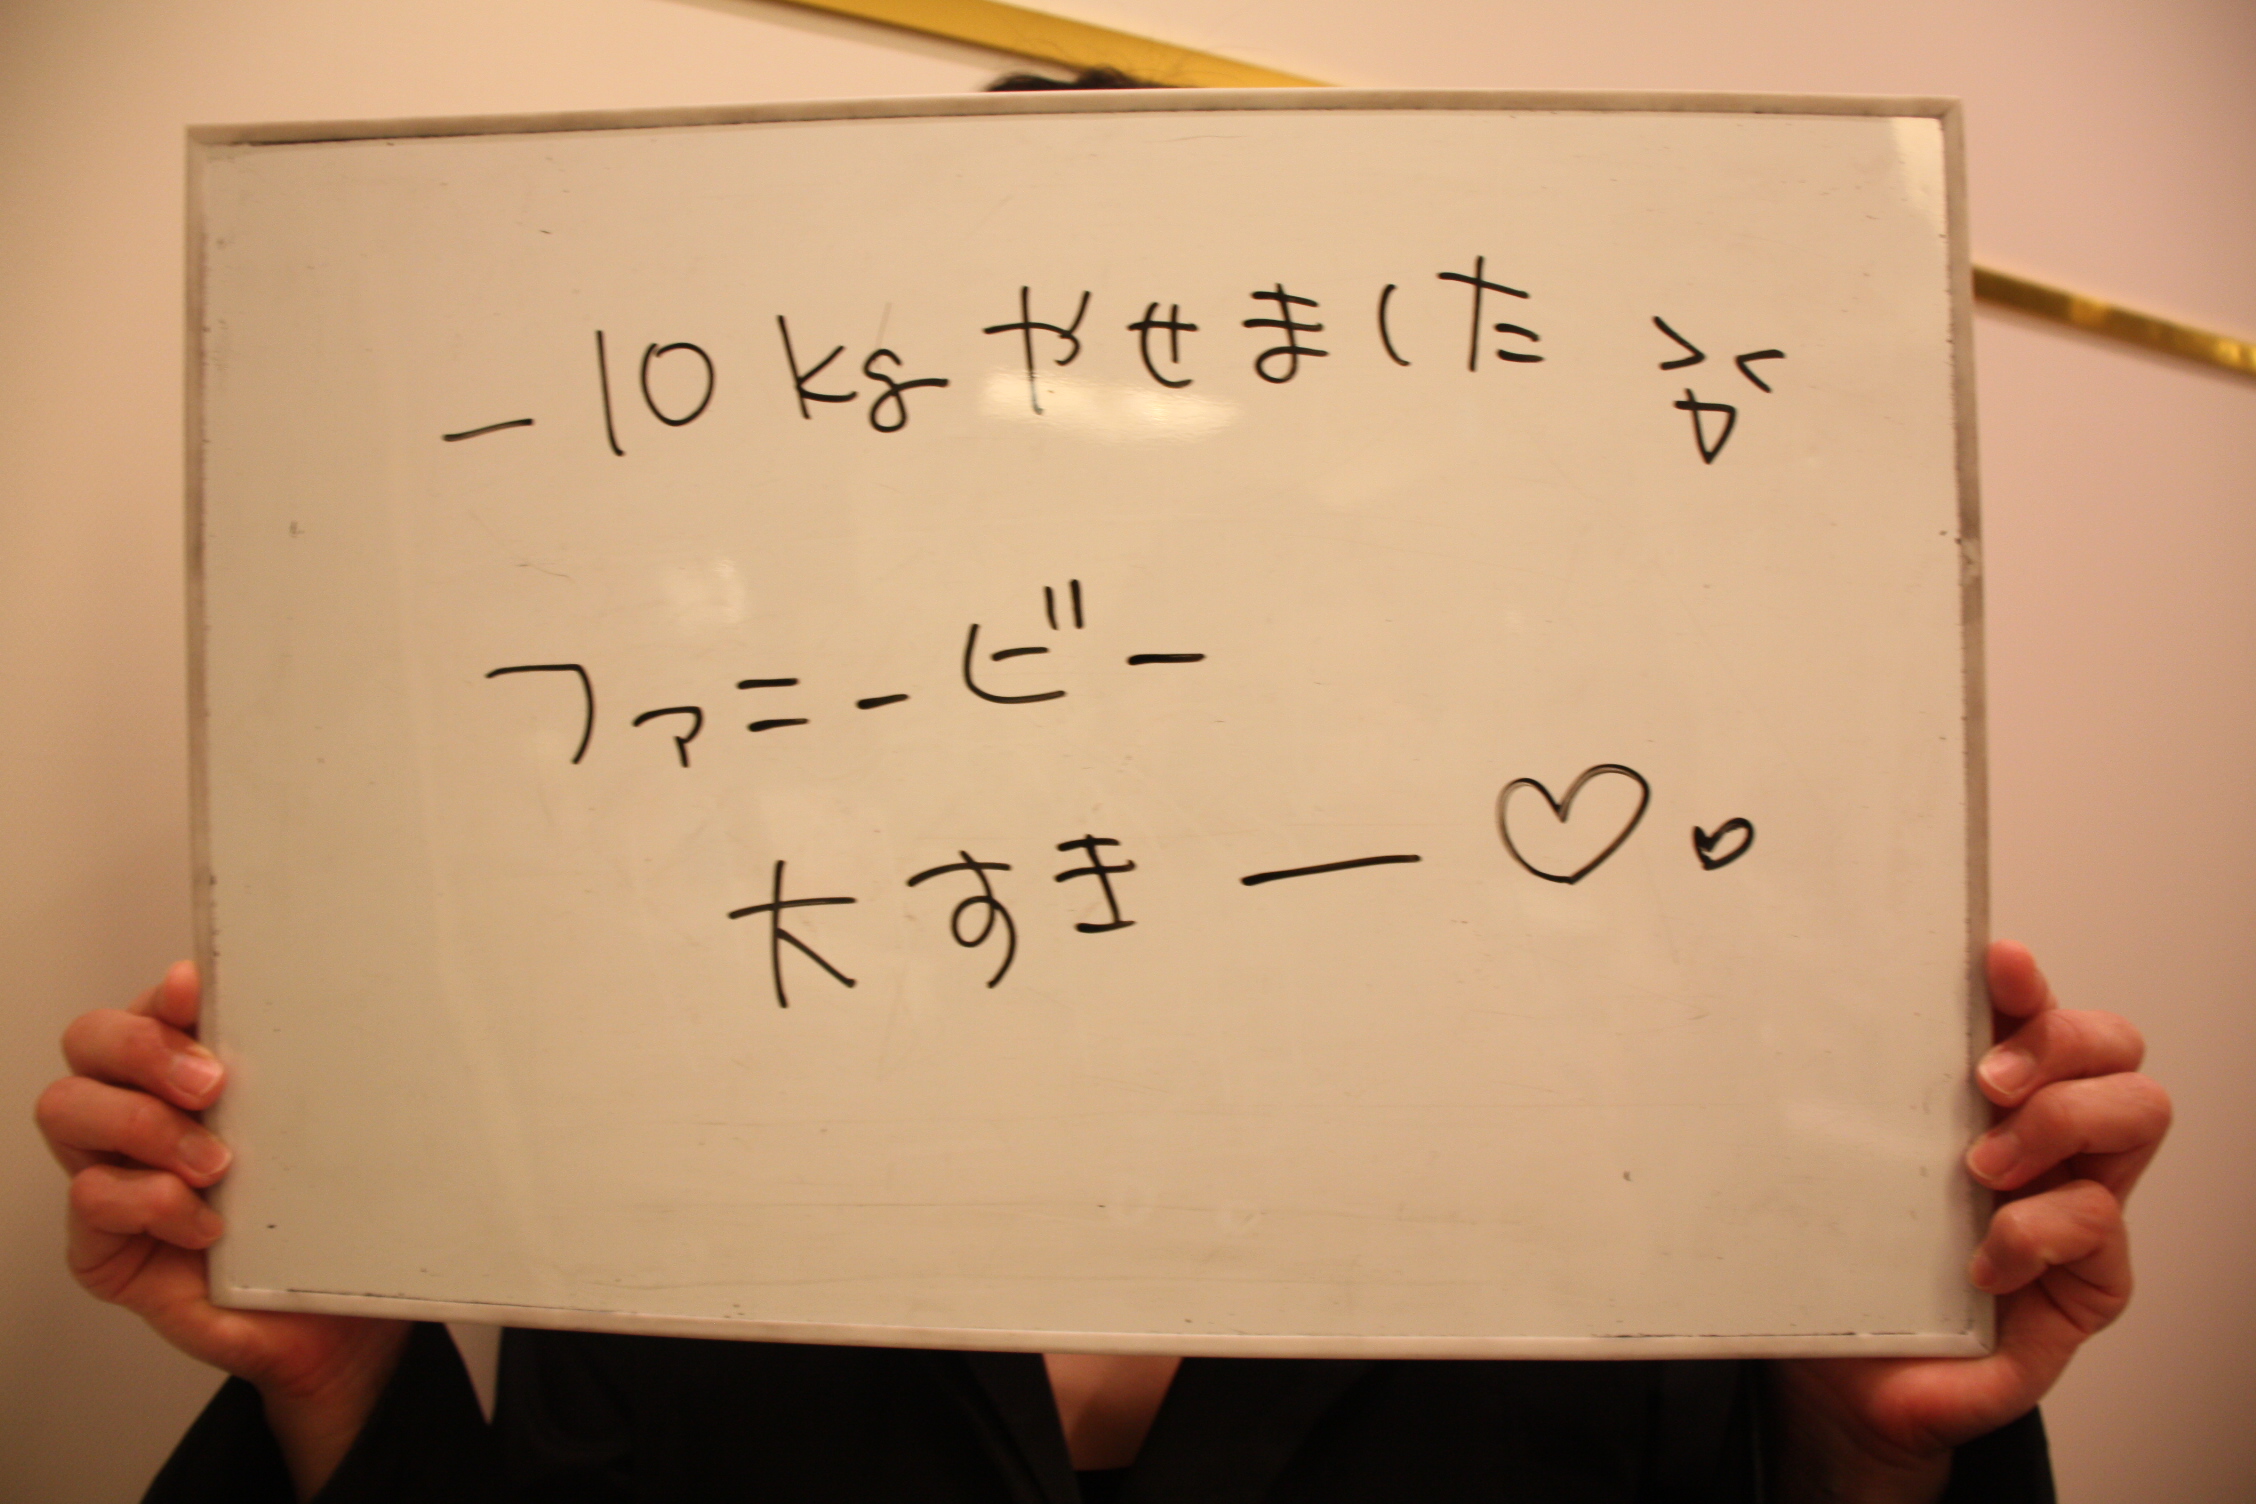 -10kgやせました
ファニービー
大すきー♡♡